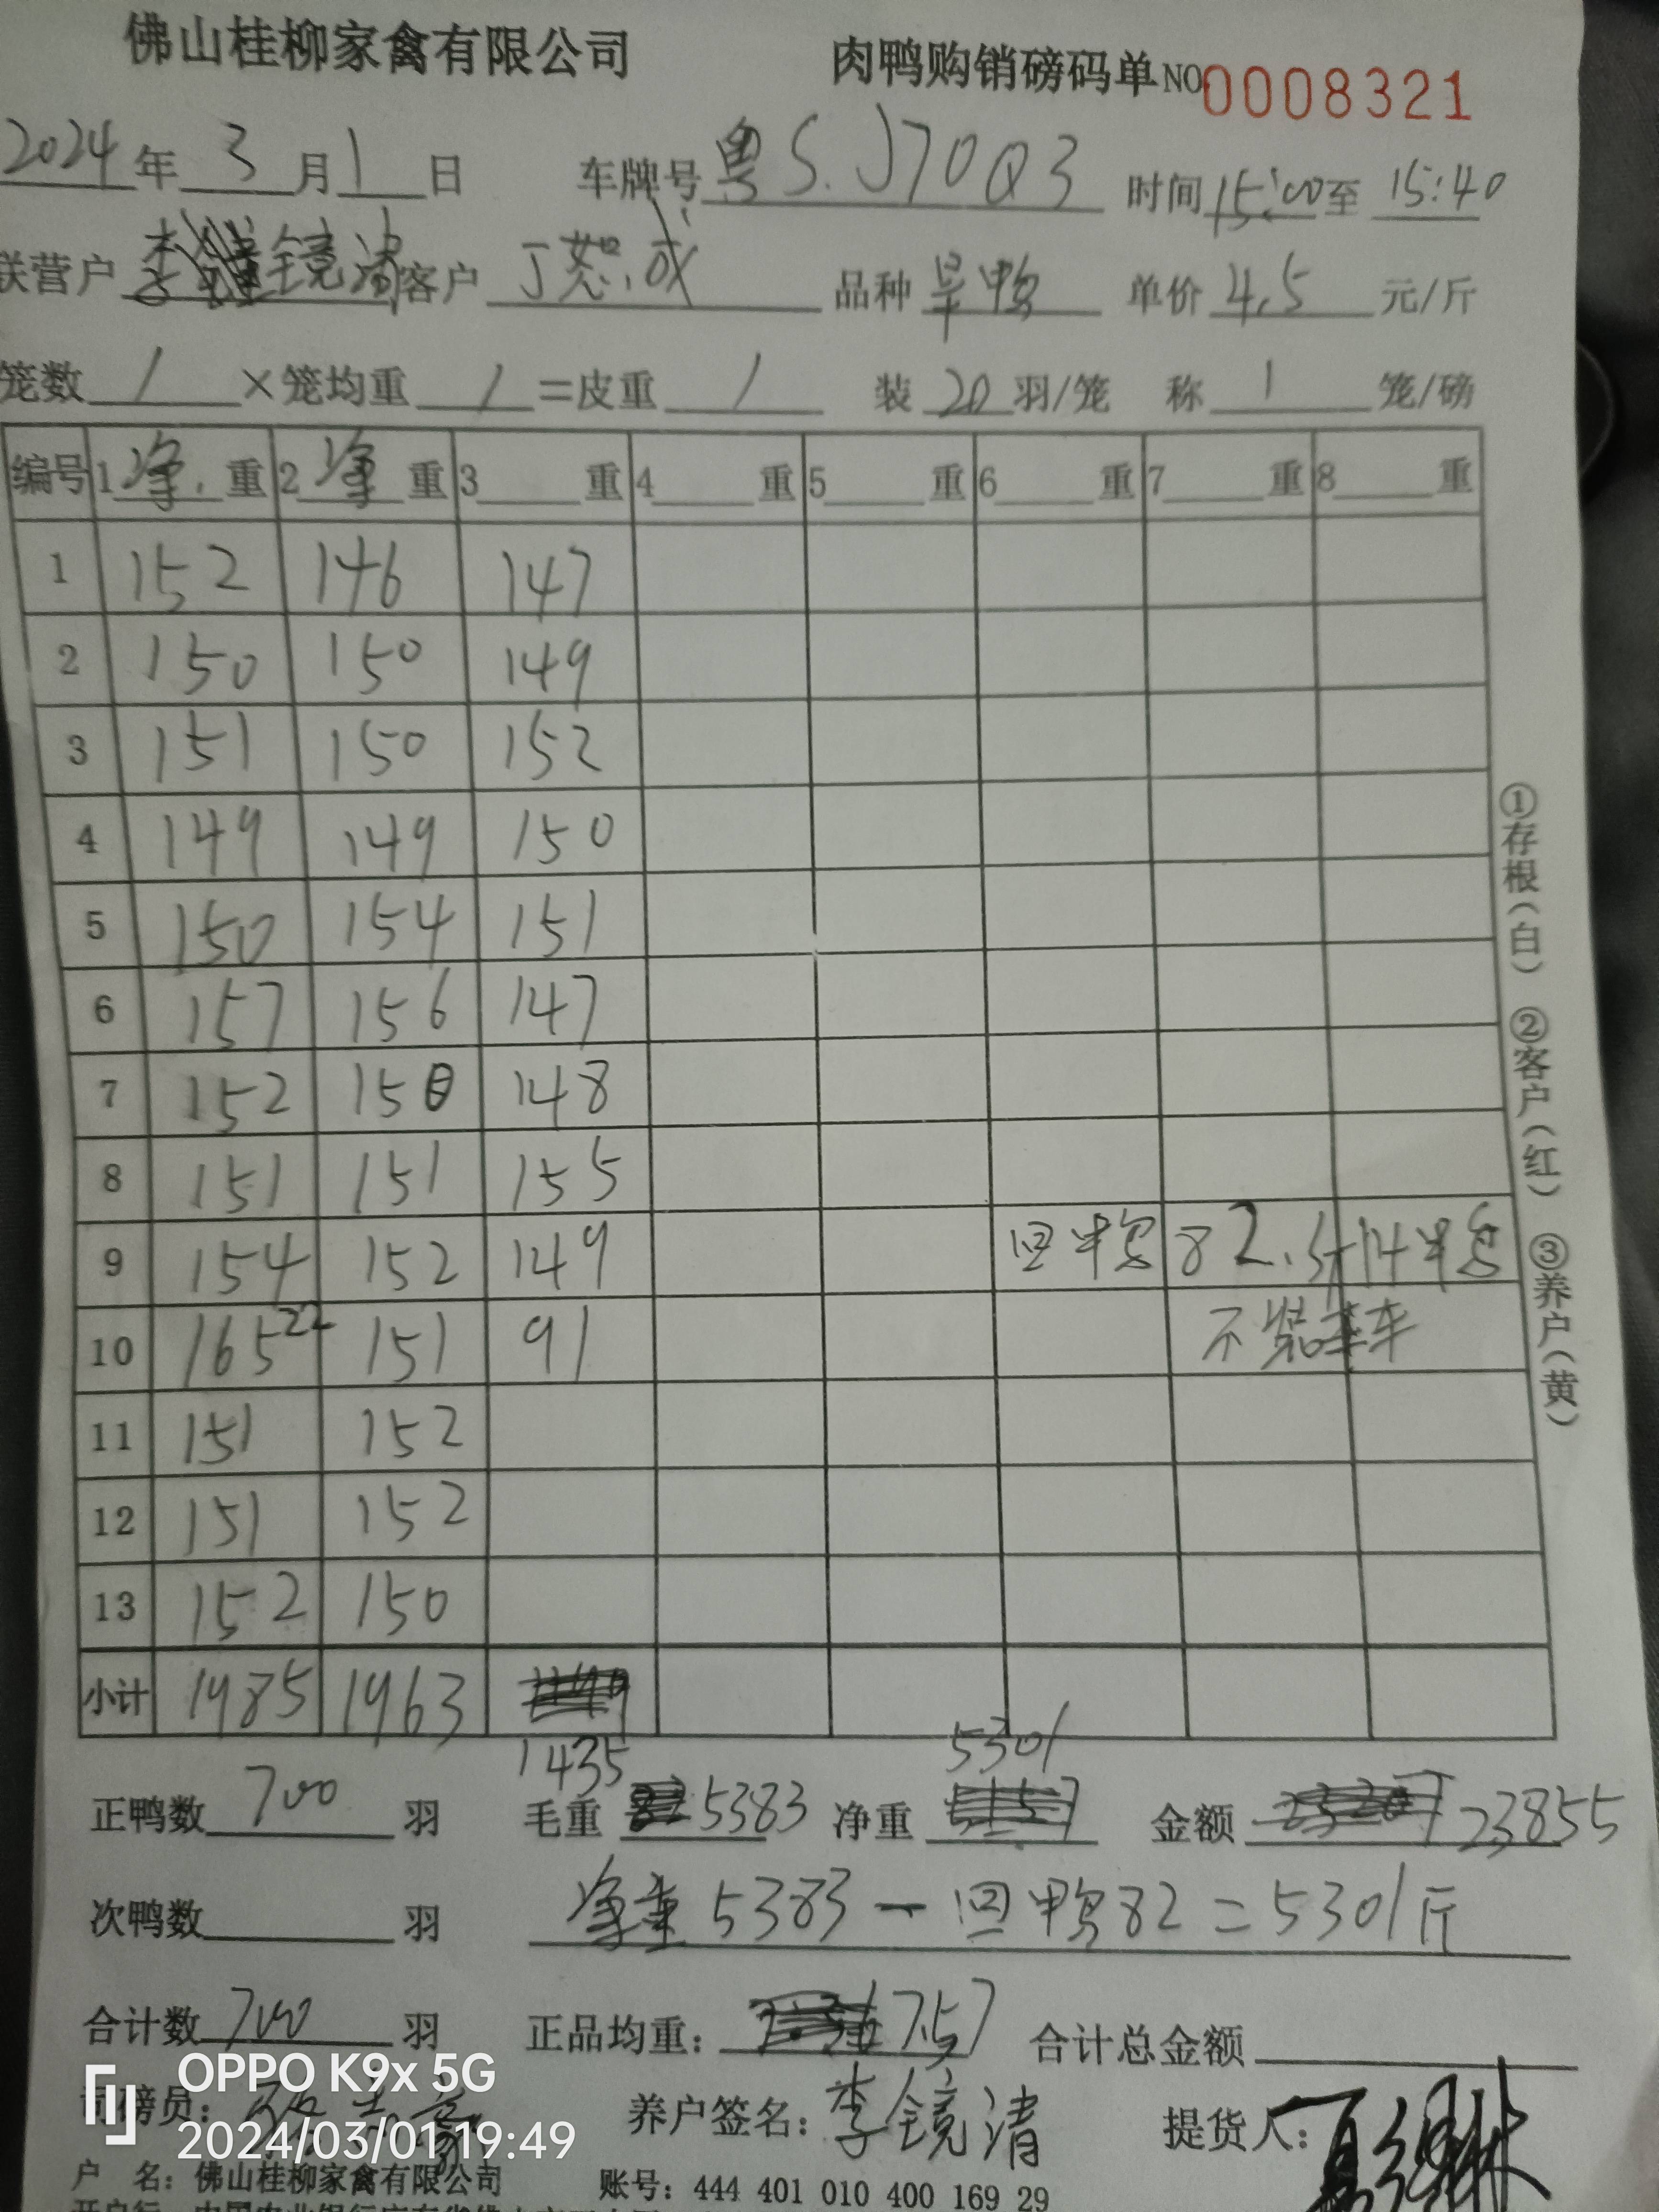 佛山桂柳家禽有限公司 肉鸭购销磅码单 NO 0008321
2024 年 3 月 1 日 车牌号 粤S.J70Q3 时间 15:00 至 15:40
联营户 李镜清 客户 品种 旱鸭 单价 4.5 元/斤
笼数 / ×笼均重 / =皮重 / 装 20 羽/笼 称 1 笼/磅
编号 1 净 重 2 净 重 3 重 4 重 5 重 6 重 7 重 8 重
1 152 146 147
2 150 150 149
3 151 150 152
4 149 149 150
5 150 154 151
6 157 156 147
7 152 150 148
8 151 151 155
9 154 152 149 回鸭 82.斤 14鸭
10 165 22 151 91 不装车
11 151 152
12 151 152
13 152 150
小计 1985 1963
1435 5301
正鸭数 700 羽 毛重 5383 净重 金额 23855
次鸭数 羽 净重 5383 - 回鸭 82 = 5301斤
合计数 700 羽 正品均重: 7.57 合计总金额
司磅员: 养户签名: 李镜清 提货人:
户 名: 佛山桂柳家禽有限公司 账号: 444 401 010 400 169 29
①存根(白) ②客户(红) ③养户(黄)
OPPO K9x 5G
2024/03/01 19:49